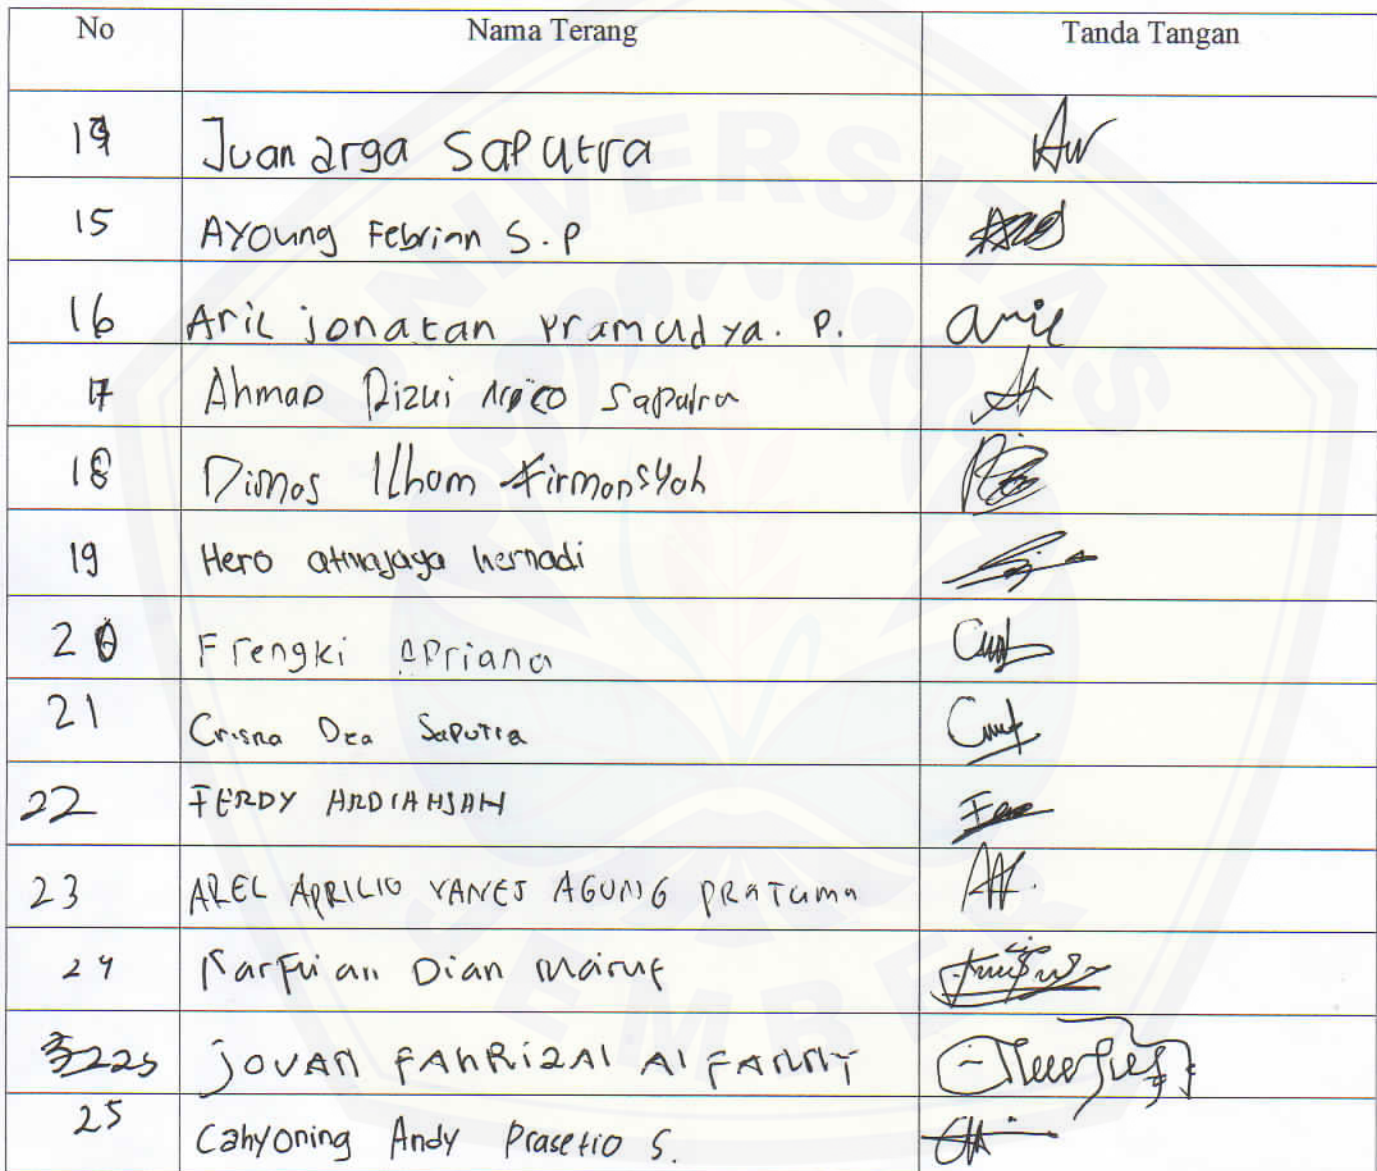 No Nama Terang Tanda Tangan
UNIVERSITAS JEMBER
Juan arga Saputra
15 AYoung Febrian S.P
16 Aric jonatan Pramudya. P. aric
17 Ahmad Rizui Saputra
18 Dimas Ilham Firmansyah
19 Hero atmajaya hernadi
20 Frengki Apriana
21 Crisna Dea Saputra
22 FERDY ARDIAHSAH
23 AREL APRILIO YANES AGUNG PRATAMA
24 Dian
25 JOVAN FAHRIZAl Al
25 Cahyoning Andy Prasetio S.